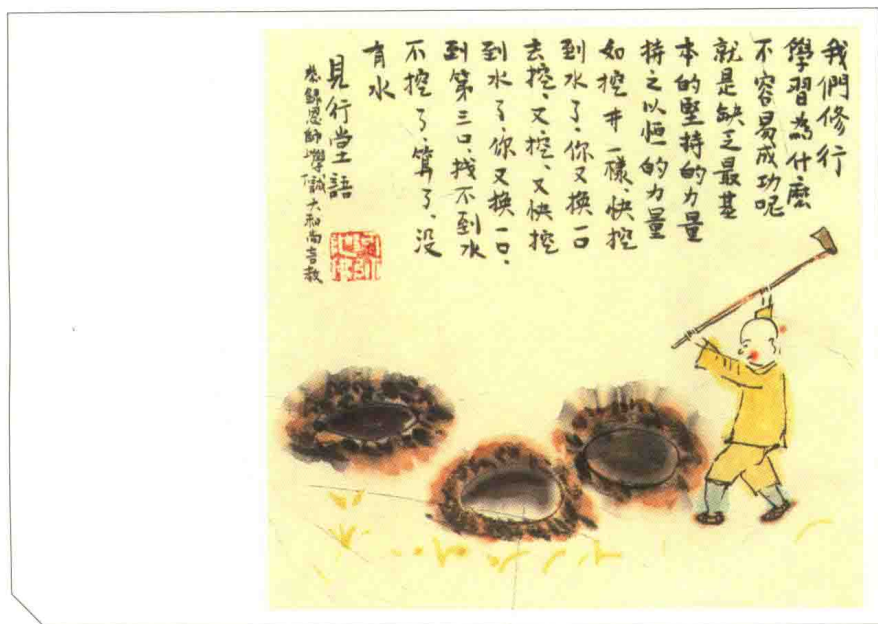 我們修行
學習為什麼
不容易成功呢
就是缺乏最基
本的堅持的力量
持之以恒的力量
如挖井一樣、快挖
到水了、你又換一口
去挖、又挖、又快挖
到水了、你又換一口、
到第三口、找不到水
不挖了、算了、沒
有水
見行堂語
恭錄恩師上學下誠大和尚言教